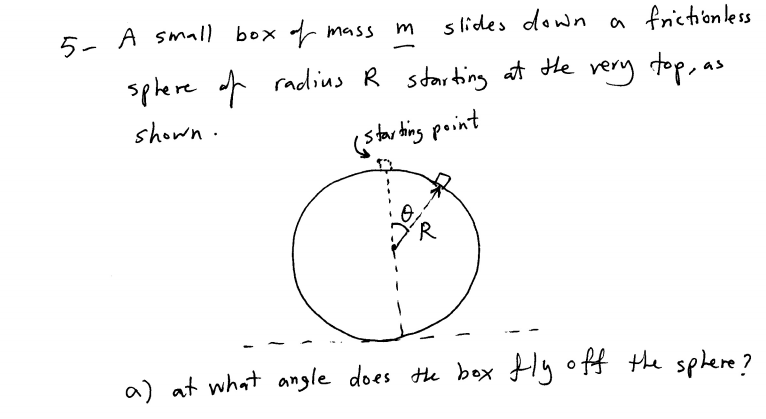 5- A small box of mass m slides down a frictionless
sphere of radius R starting at the very top, as
shown.
starting point
θ
R
a) at what angle does the box fly off the sphere?